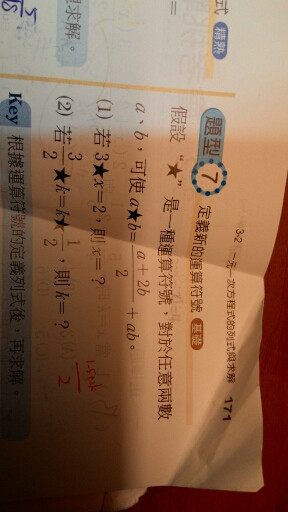 3-2 一元一次方程式的列式與求解 171
式 精熟
=
題型 7 定義新的運算符號 基礎
假設 “★” 是一種運算符號，對於任意兩數
a、b，可使 a★b=\frac{a+2b}{2}+ab。
(1) 若 3★x=2，則 x=？
(2) 若 \frac{3}{2}★k=k★\frac{1}{2}，則 k=？
求解。
Key 根據運算符號的定義列式後，再求解。